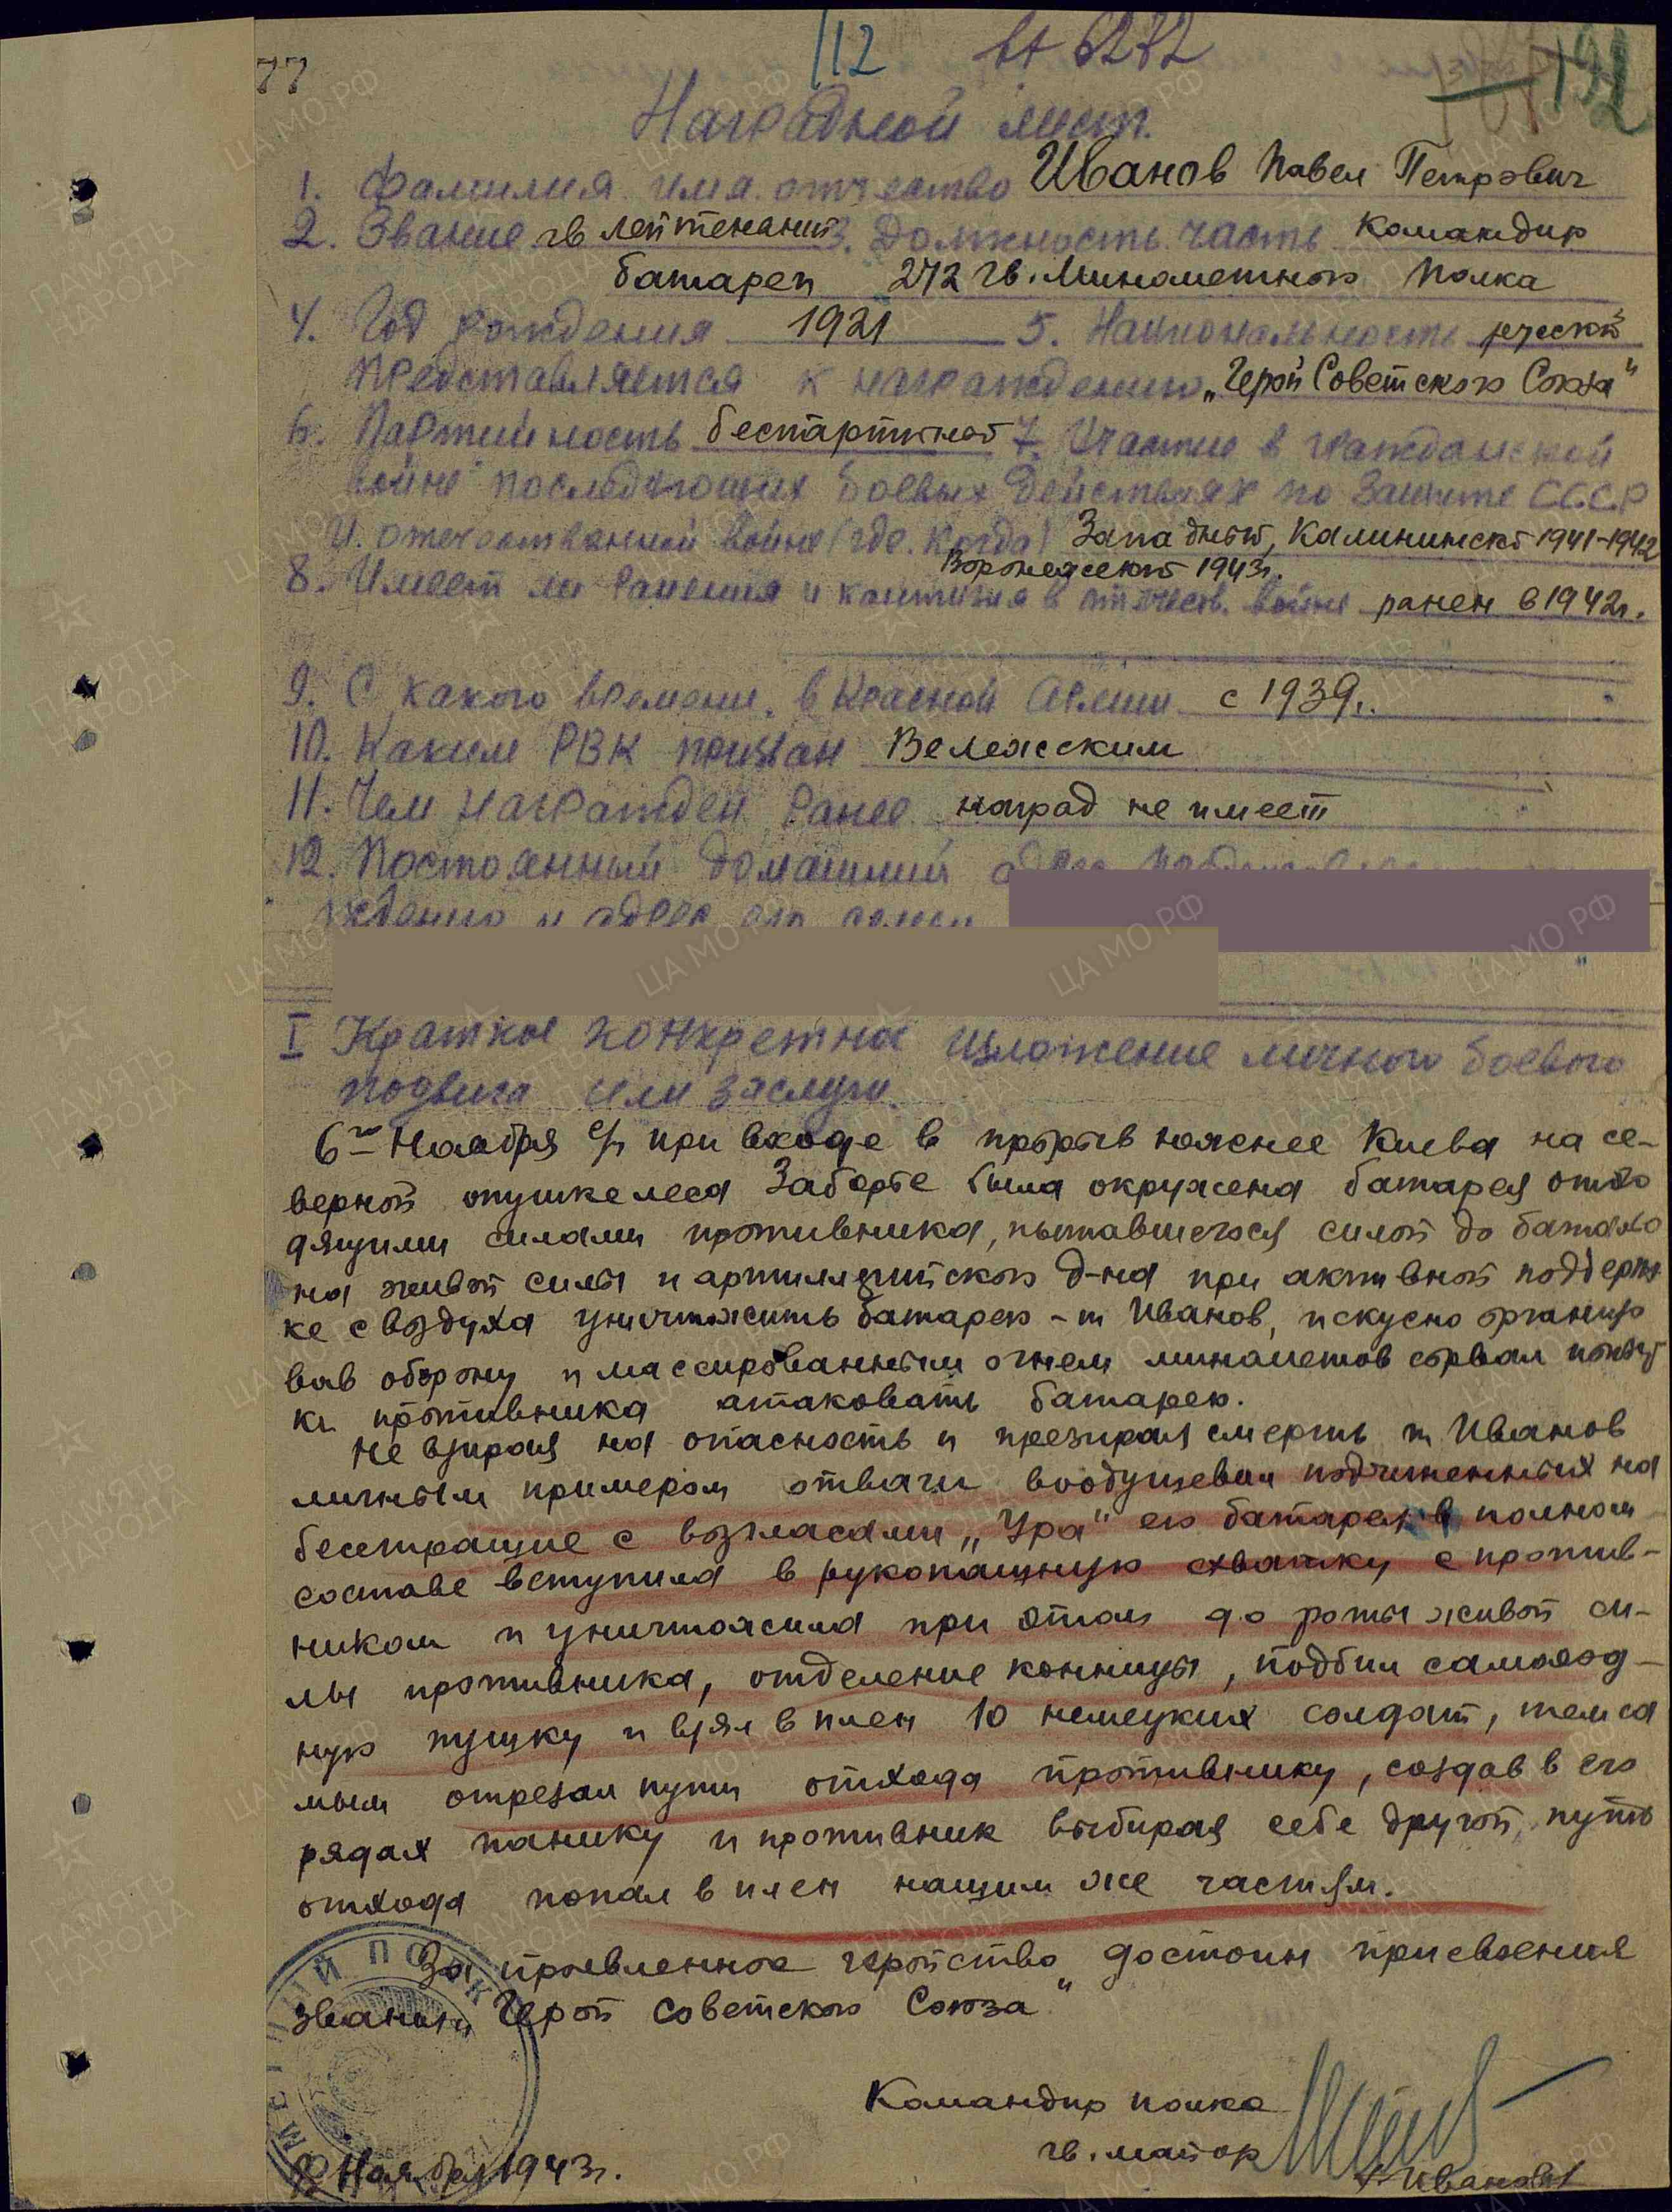 77
112
вх 6272
Наградной лист.
1. Фамилия. имя. отчество Иванов Павел Петрович
2. Звание гв лейтенант 3. Должность. часть Командир
батареи 272 гв. Минометного полка
4. Год рождения 1921 5. Национальность русский
Представляется к награждению „Герой Советского Союза"
6. Партийность беспартийной 7. Участие в гражданской
войне последующих боевых действиях по защите СССР
и. отечественной войне (где. когда) Западный, Калининский 1941-1942
Воронежский 1943г.
8. Имеет ли ранения и контузия в отечеств. войне ранен в 1942г.
9. С какого времени. в Красной Армии с 1939г.
10. Каким РВК призван Вележским
11. Чем награжден ранее наград не имеет
12. Постоянный домашний адрес
ждению и адрес его семьи
I Краткое конкретное изложение личного боевого
подвига или заслуги.
6го Ноября с/г при входе в прорыв южнее Киева на се-
верной опушке леса Заборье была окружена батарея отхо
дящими силами противника, пытавшегося силой до батальо
на живой силы и артиллерийского д-на при активной поддерж
ке с воздуха уничтожить батарею - т Иванов, искусно организо
вав оборону и массированным огнем минометов сорвал попыт
ки противника атаковать батарею.
Не взирая на опасность и презирая смерть т Иванов
личным примером отваги воодушевил подчиненных на
бесстрашие с возгласами „Ура" его батарея в полном
составе вступила в рукопашную схватку с против-
ником и уничтожила при этом до роты живой си-
лы противника, отделение конницы, подбил самоход-
ную пушку и взял в плен 10 немецких солдат, тем са
мым отрезал пути отхода противнику, создав в его
рядах панику и противник выбирая себе другой путь
отхода попал в плен нашим же частям.
За проявленное геройство достоин присвоения
звания „Герой Советского Союза"
Командир полка
гв. майор
Иванов
Ноября 1943г.
ЦА МО РФ
ПАМЯТЬ НАРОДА